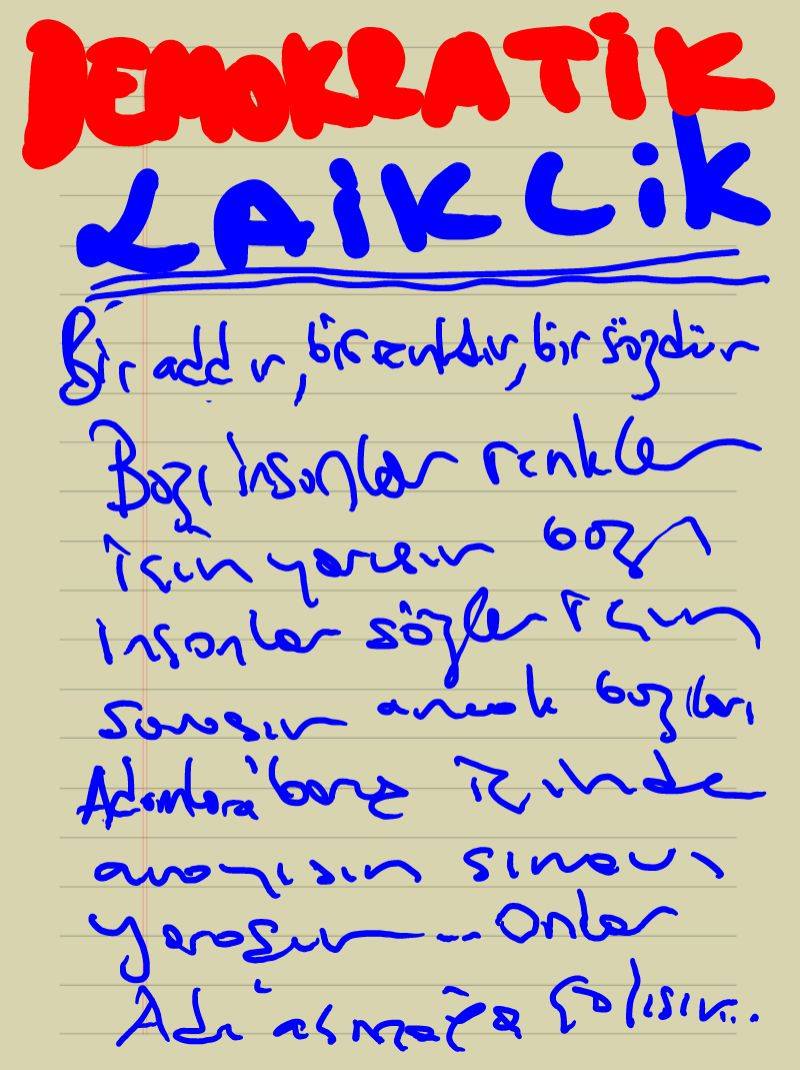 DEMOKRATİK
LAİKLİK
Bir addır, bir renktir, bir sözdür
Bazı insanlar renkler
için yarışır bazı
insanlar sözler için
savaşır ancak bazıları
Adamlara barış içinde
sınavı
yaraşır... Onlar
Adı aşmağa çalışır...